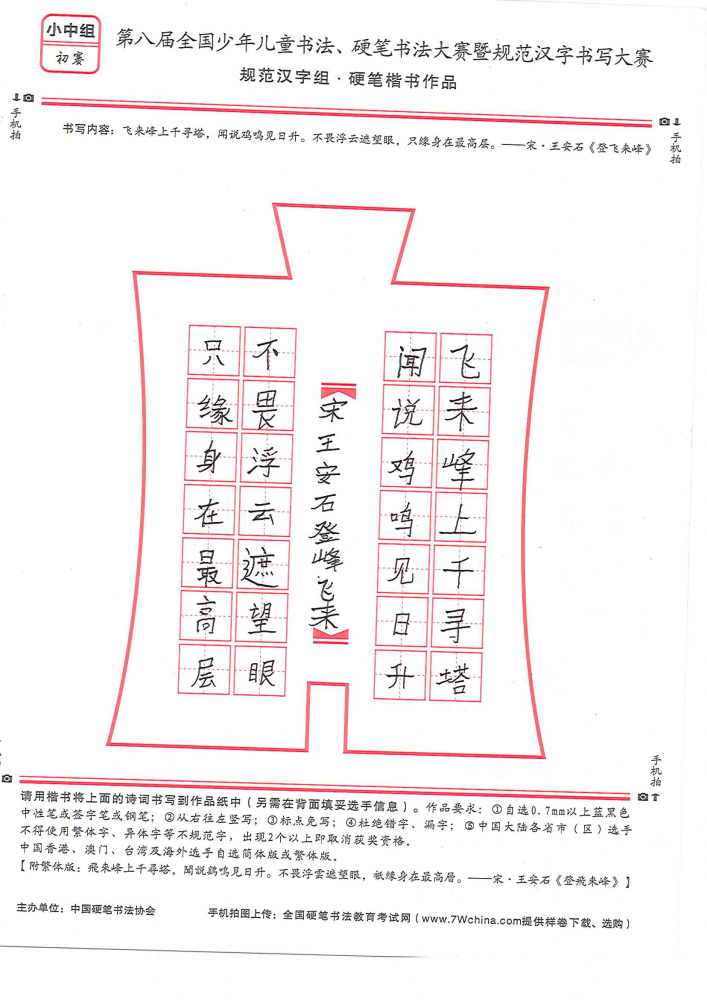 小中组
初赛
第八届全国少年儿童书法、硬笔书法大赛暨规范汉字书写大赛
规范汉字组·硬笔楷书作品
手机拍
手机拍
书写内容：飞来峰上千寻塔，闻说鸡鸣见日升。不畏浮云遮望眼，只缘身在最高层。——宋·王安石《登飞来峰》
飞来峰上千寻塔
闻说鸡鸣见日升
宋王安石登峰飞来
不畏浮云遮望眼
只缘身在最高层
手机拍
请用楷书将上面的诗词书写到作品纸中（另需在背面填妥选手信息）。作品要求：①自选0.7mm以上蓝黑色
中性笔或签字笔或钢笔；②从右往左竖写；③标点免写；④杜绝错字、漏字；⑤中国大陆各省市（区）选手
不得使用繁体字、异体字等不规范字，出现2个以上即取消获奖资格。
中国香港、澳门、台湾及海外选手自选简体版或繁体版。
【附繁体版：飛来峰上千尋塔，聞說鷄鳴見日升。不畏浮雲遮望眼，衹緣身在最高層。——宋·王安石《登飛来峰》】
主办单位：中国硬笔书法协会
手机拍图上传：全国硬笔书法教育考试网（www.7Wchina.com提供样卷下载、选购）